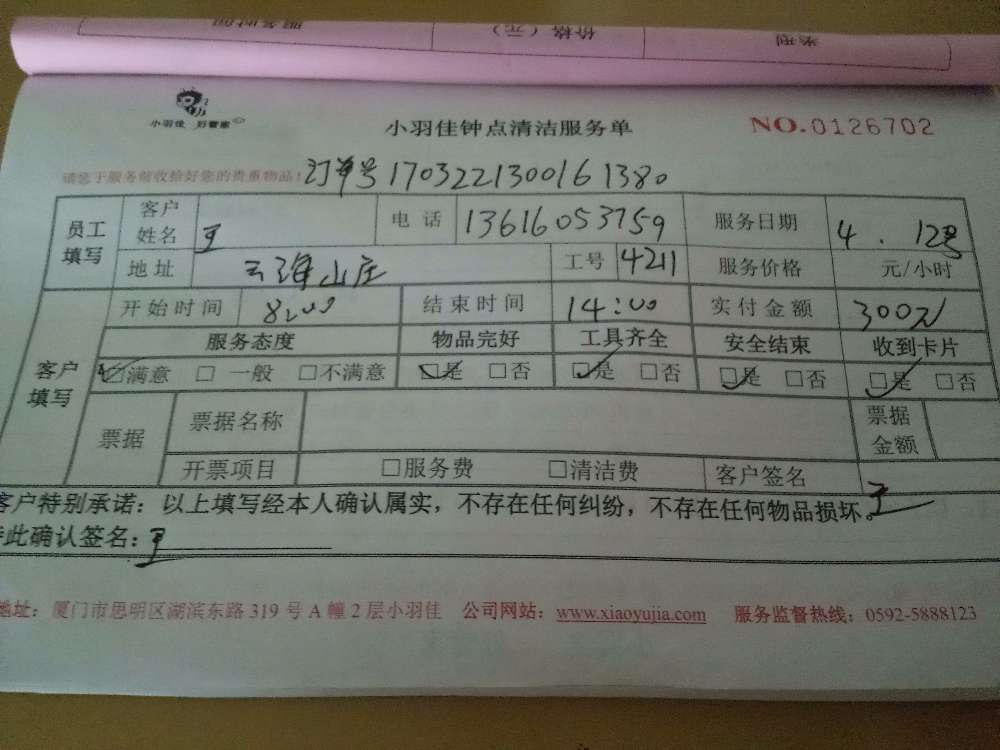 服务时间 价格（元） 类型
小羽佳 好管家
小羽佳钟点清洁服务单 NO.0126702
请您于服务前收拾好您的贵重物品！ 订单号 1703221300161380
员工填写 客户姓名 王 电话 13616053759 服务日期 4.12号
地址 云海山庄 工号 4211 服务价格 元/小时
客户填写 开始时间 8:00 结束时间 14:00 实付金额 300元
服务态度 物品完好 工具齐全 安全结束 收到卡片
☑满意 □一般 □不满意 ☑是 □否 ☑是 □否 ☑是 □否 ☑是 □否
票据 票据名称 票据金额
开票项目 □服务费 □清洁费 客户签名 王
客户特别承诺：以上填写经本人确认属实，不存在任何纠纷，不存在任何物品损坏。
特此确认签名：王
地址：厦门市思明区湖滨东路 319 号 A 幢 2 层小羽佳 公司网站：www.xiaoyujia.com 服务监督热线：0592-5888123